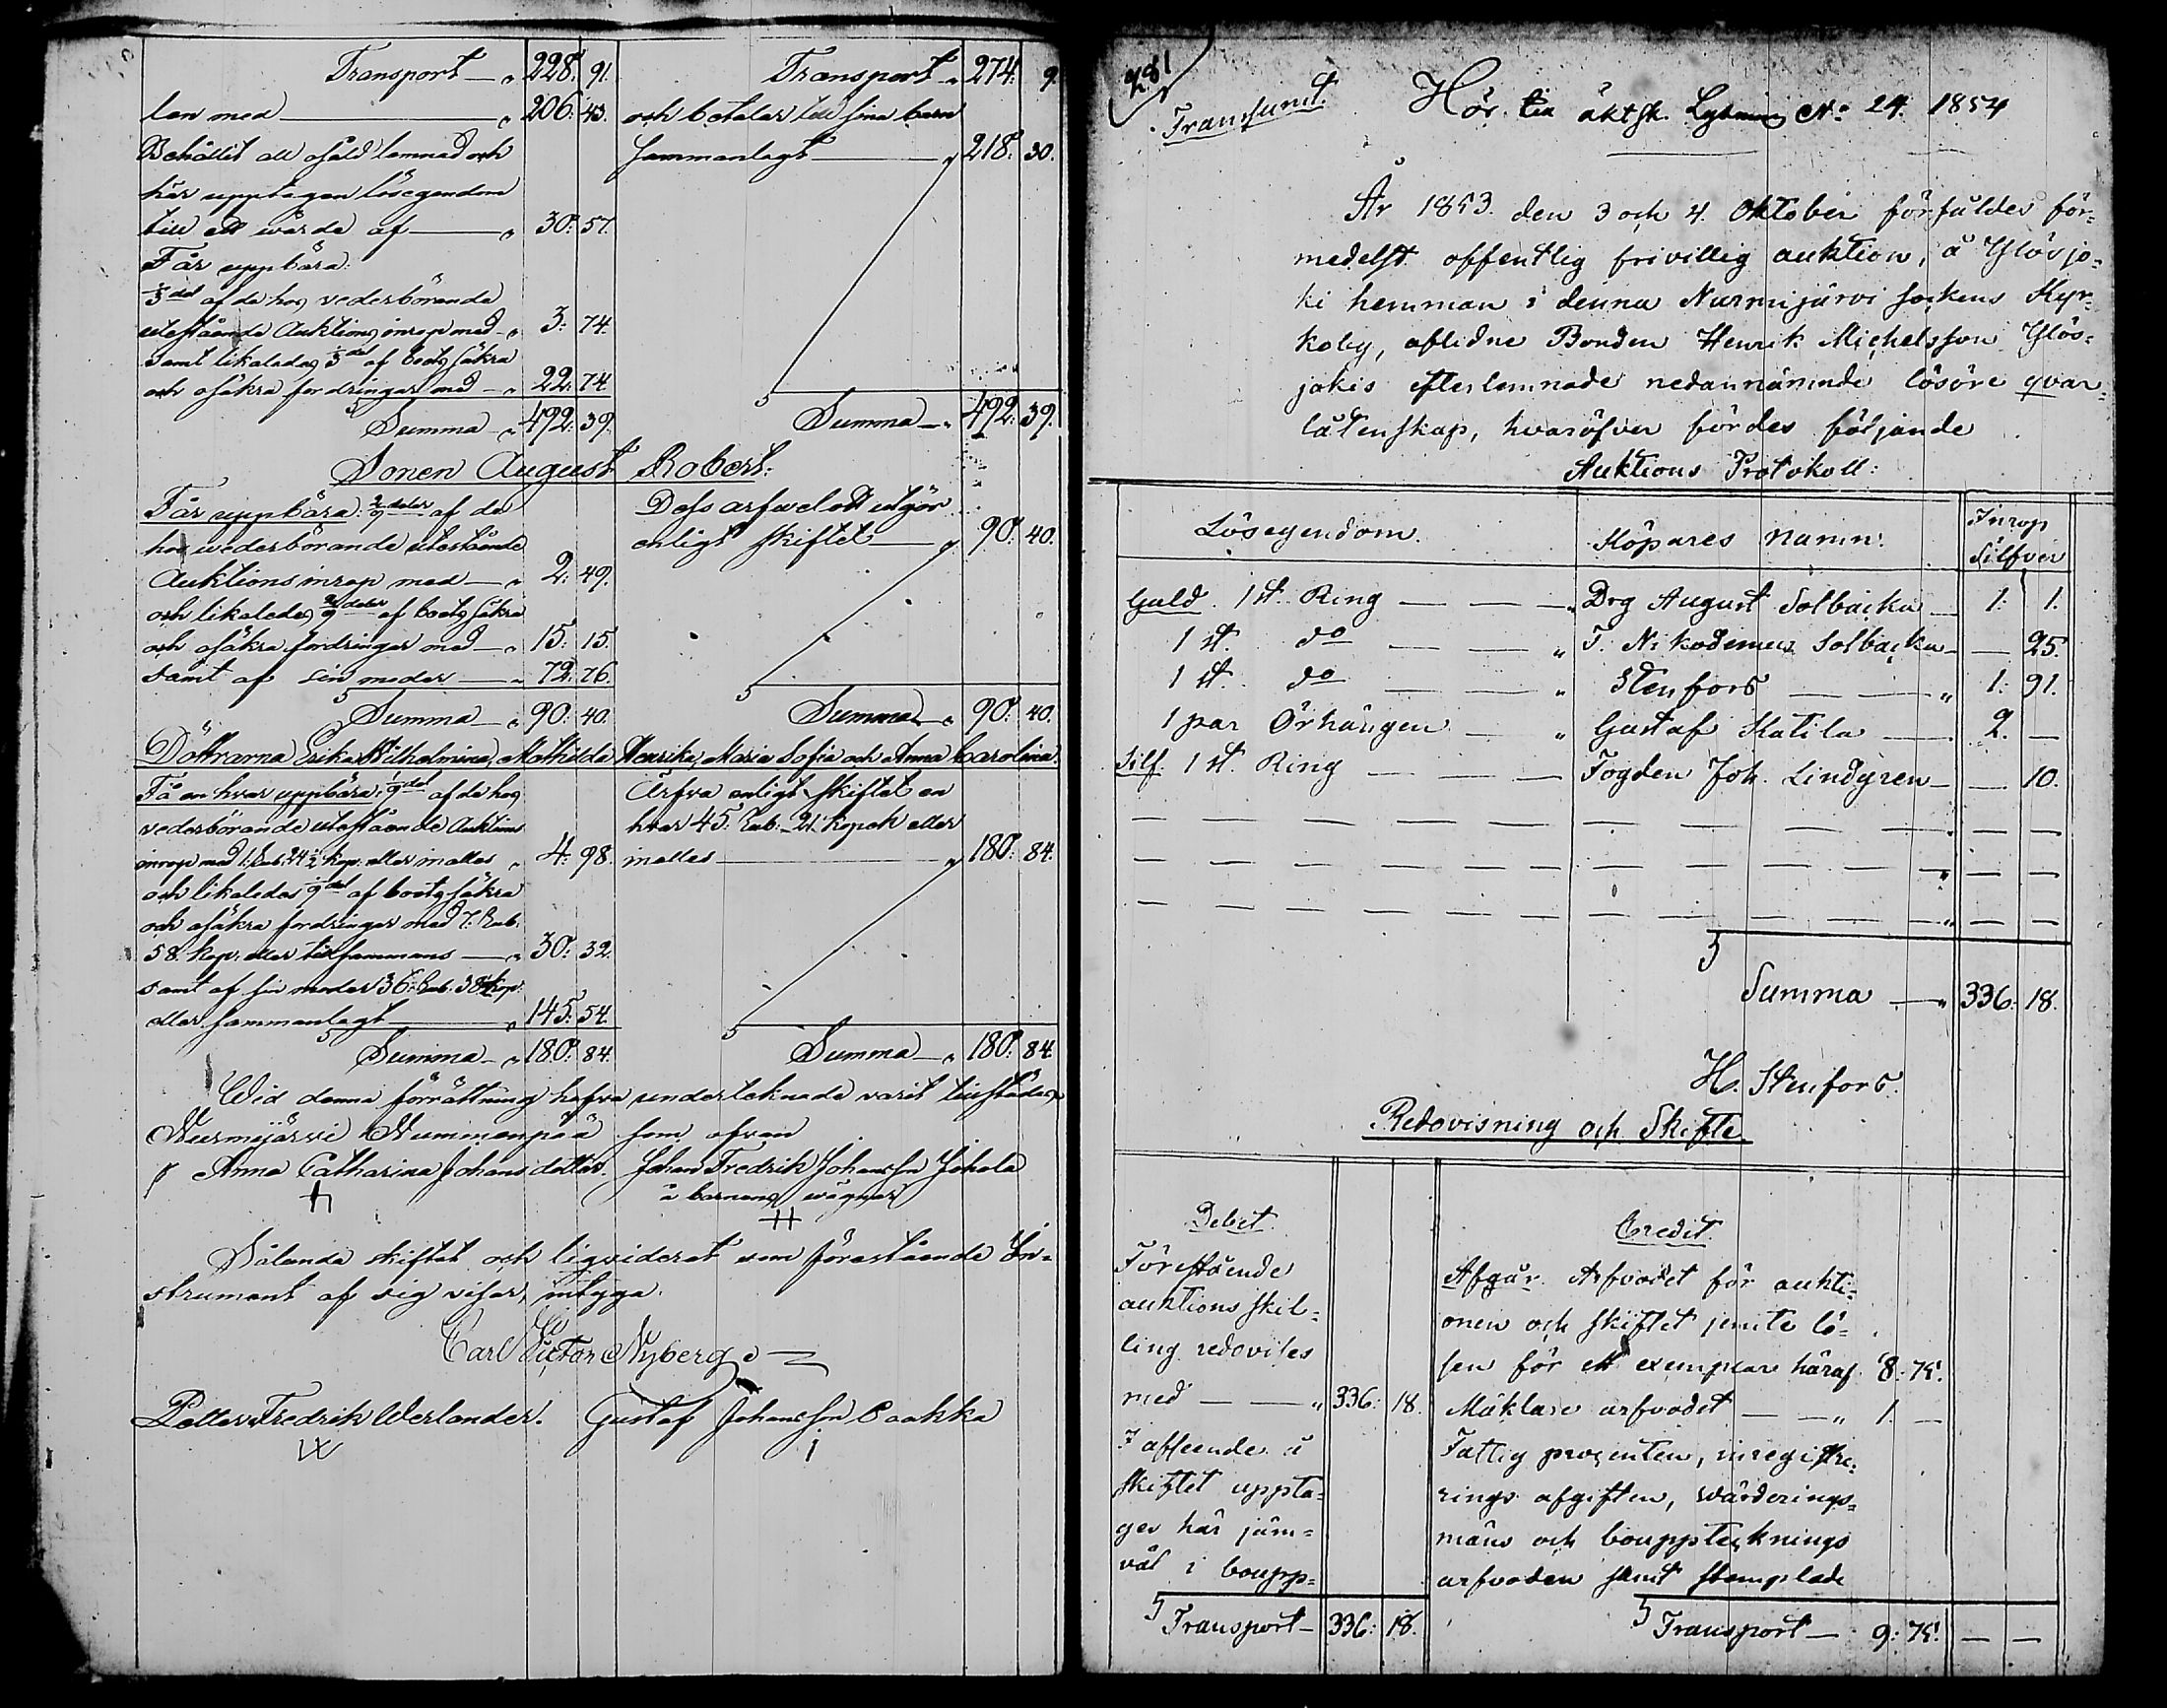 Transport — „ 228. 91.
len med — „ 206. 43.
Behållit all osåld lemnad och
här upptagen lösegendom
till ett wärde af — „ 30. 57.
Får uppbära:
1/3 del af de hos vederbörande
utestående Auktions inrop med „ 3. 74.
samt likaledes 1/3 del af boets säkra
och osäkra fordringar med — „ 22. 74
Summa — „ 492. 39.
Transport — „ 274. 9.
och betalar till sina barn
sammanlagt — „ 218. 30.
Summa — „ 492. 39.
Sonen August Robert:
Får uppbära: 2/9 delar af de
hos wederbörande utestående
Auktionsinrop med — „ 2. 49.
och likaledes 2/9 delar af boets säkra
och osäkra fordringar med — „ 15. 15.
samt af sin moder — „ 72. 76.
Summa — „ 90. 40.
Dess arfwelott utgör
enligt skiftet — „ 90. 40.
Summa — „ 90. 40.
Döttrarna Erika Wilhelmina, Mathilda Henrika, Maria Sofia och Anna Carolina.
Få en hvar uppbära: 1/9 del af de hos
vederbörande utestående Auktions
inrop med 1. Rub. 24 1/2 kop. eller inalles „ 4. 98.
och likaledes 1/9 del af boets säkra
och osäkra fordringar med 7. Rub.
58. kop. eller tillsammans — „ 30. 32.
samt af sin moder 36. Rub. 38 1/2 kop.
eller sammanlagt — „ 145. 54.
Summa — „ 180. 84.
Ärfva enligt skiftet en
hvar 45. Rub. 21. kopek eller
inalles — „ 180. 84.
Summa — „ 180. 84.
Wid denna förrättning hafva undertecknade varit tillstädes,
Nurmijärvi Nummenpää som ofvan
Anna Catharina Johansdotter. Johan Fredrik Johansson Johola
å barnens wägnar
Sålunda skiftat och liqviderat som förestående In-
strument af sig visar, intyga.
Carl Victor Nyberg
Petter Fredrik Werlander. Gustaf Johansson Paakka
281
Transumt. Hör till äktsk. Lysning No 24. 1854
År 1853. den 3 och 4. Oktober försåldes för-
medelst offentlig frivillig auktion, å Ylösjo-
ki hemman i denna Nurmijärvi sockens Kyr-
koby, aflidne Bonden Henrik Michelsson Ylös-
jokis efterlemnade nedannämnde lösöre qvar-
låtenskap, hvaröfver fördes följande
Auktions Protokoll:
Lösegendom. Köpares namn. Inrop Silfver
Guld. 1 st. Ring — — — „ Drg August Solbacka — 1. 1.
1 st. do — — „ T. Nikodemus Solbacka — — 25.
1 st. do — — „ Stenfors — — „ 1. 91.
1 par Örhängen — „ Gustaf Katila — 2. —
Silf. 1 st. Ring — — — Fogden Joh. Lindgren — — 10.
Summa — „ 336. 18.
H. Stenfors.
Redovisning och Skifte.
Debet.
Förestående
auktions skil-
ling redovises
med — — „ 336. 18.
I afseende å
skiftet uppta-
ges här jäm-
väl i boupp-
Transport — 336. 18.
Credit.
Afgår. Arfvodet för aukti-
onen och skiftet jemte lö-
sen för ett exemplar häraf 8. 75.
Mäklare arfvodet — — „ 1. —
Fattig procenten, inregistre-
rings afgiften, värderings-
mäns och bouppteknings
arfvoden samt stemplade
Transport — 9. 75. — —